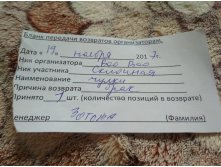 Бланк передачи возвратов организаторам.
Дата «19» ноября 2017г.
Ник организатора Воо Воо
Ник участника Склочная
Наименование чулки
Причина возврата брак
Принято 1 шт. (количество позиций в возврате)
енеджер Зотова (Фамилия)